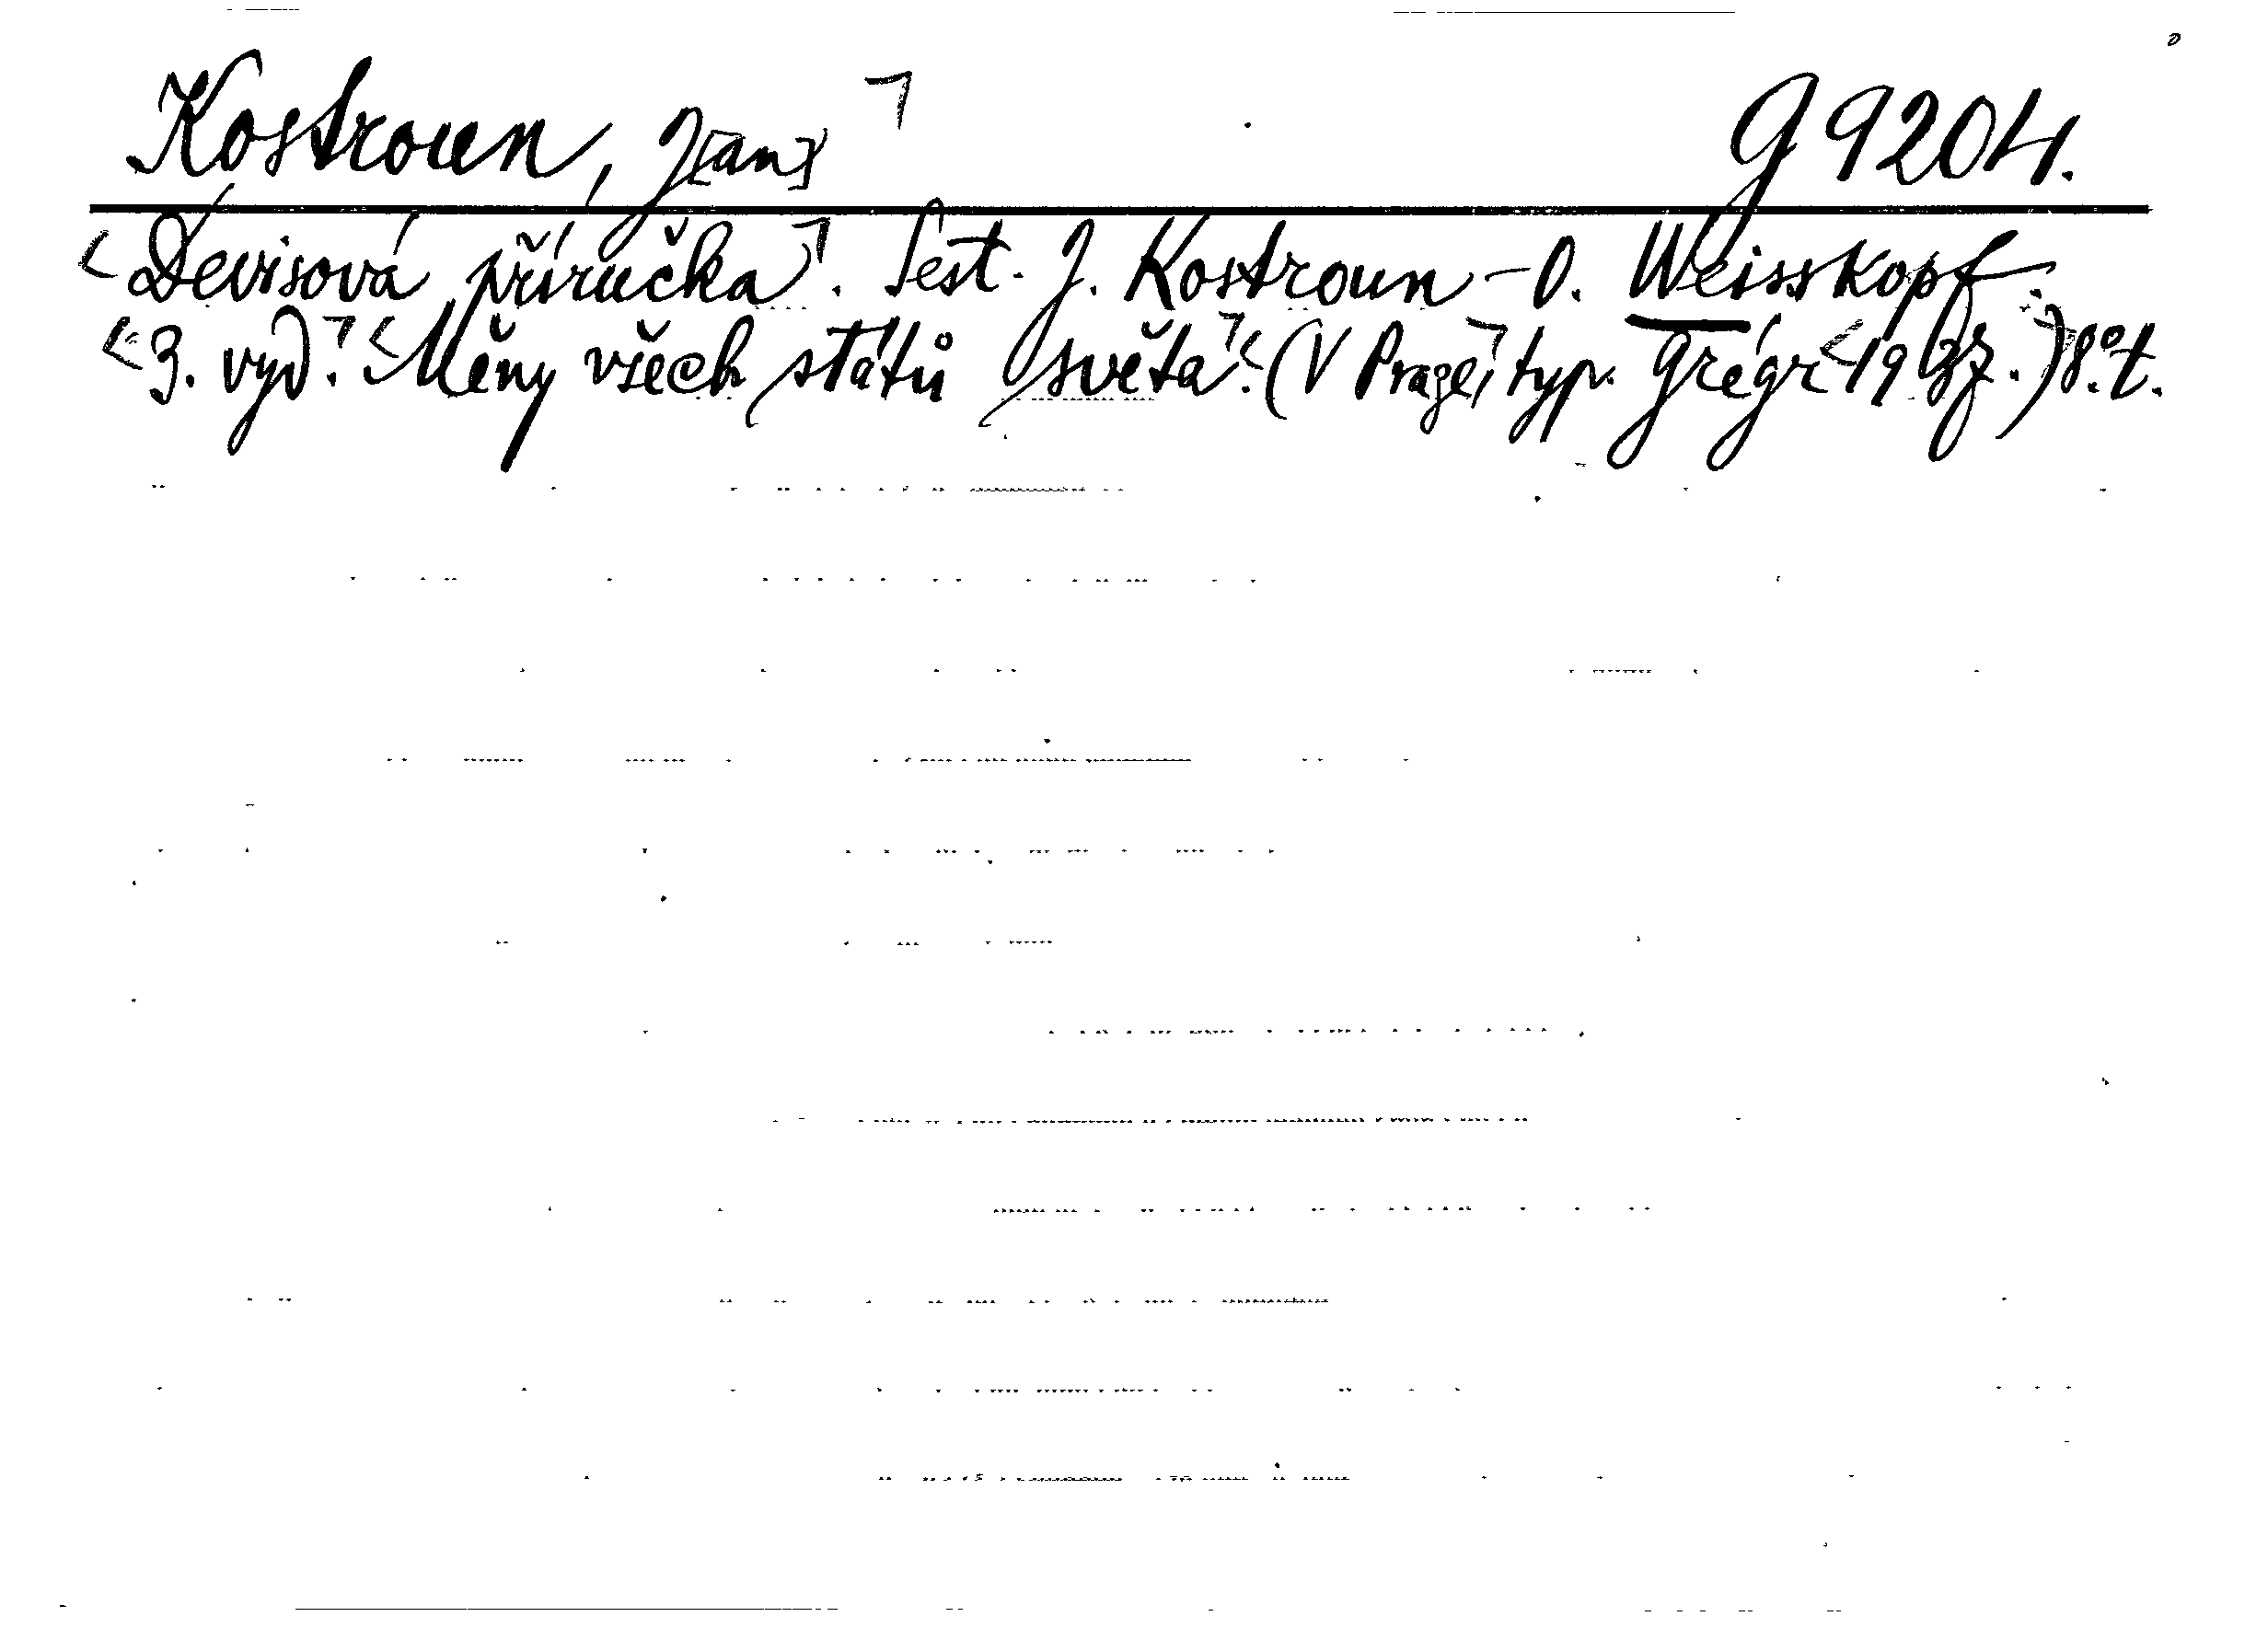 Kostroun, J[an] G 9204.
Devisová příručka. Sest. J. Kostroun - O. Weisskopf.
3. vyd. Měny všech států světa. (V Praze, typ. Grégr 1937.) 8°. t.